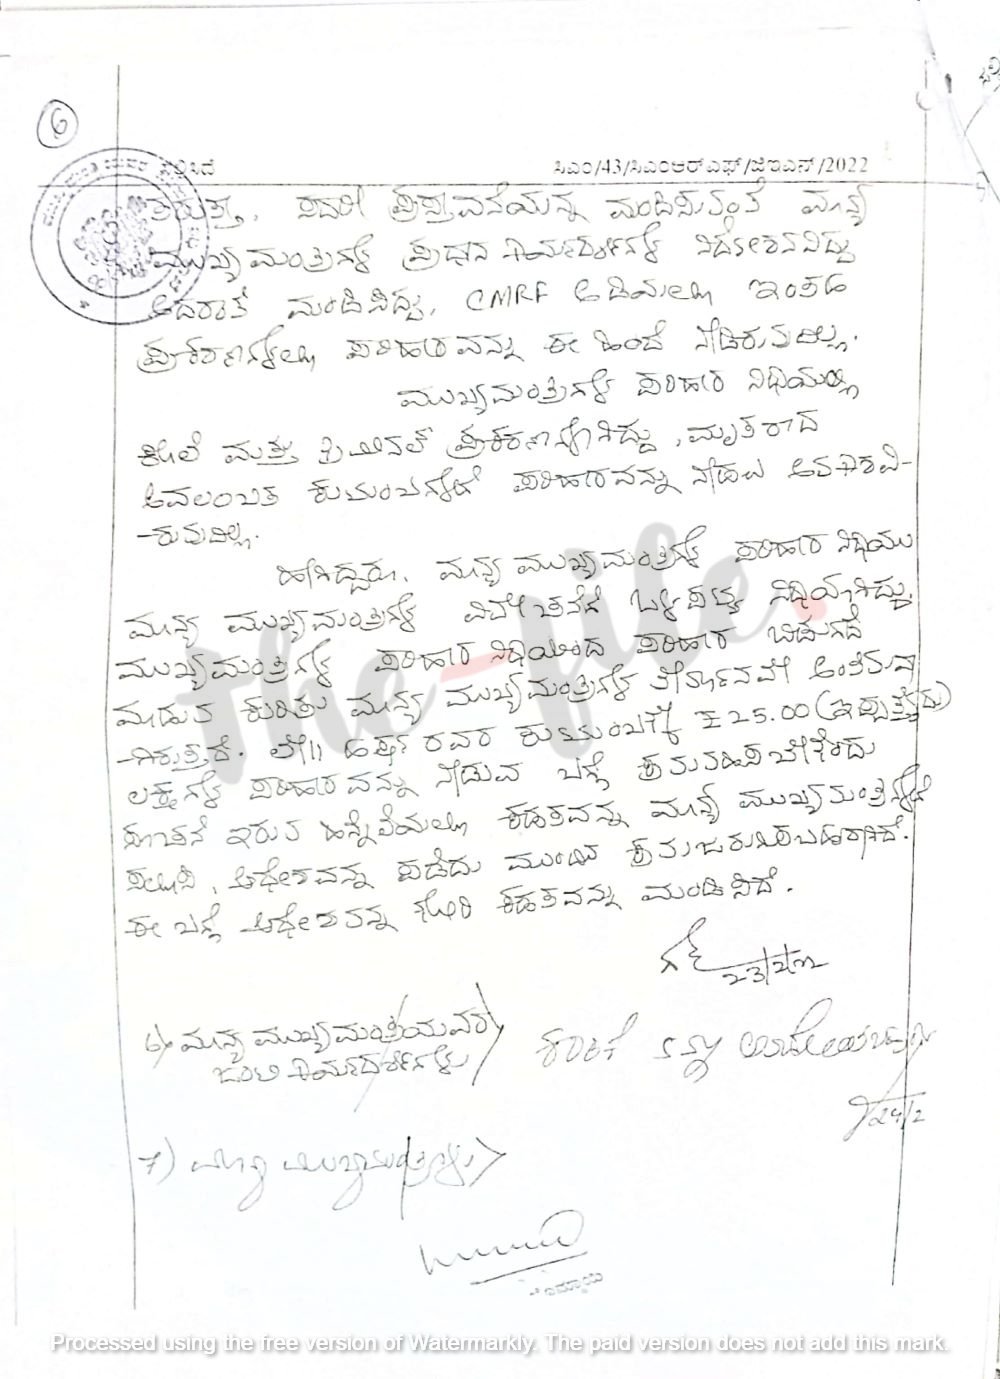 6
ಸಿಎಂ/43/ಸಿಎಂಆರ್ ಎಫ್/ಜಿಇಎನ್/2022
ಸದರಿ ಪ್ರಸ್ತಾವನೆಯನ್ನು ಮಂಡಿಸುವಂತೆ ಮಾನ್ಯ
ಮುಖ್ಯಮಂತ್ರಿಗಳ ಪ್ರಧಾನ ಕಾರ್ಯದರ್ಶಿಗಳ ನಿರ್ದೇಶನವಿದ್ದು
ಅದರಂತೆ ಮಂಡಿಸಿದ್ದು, CMRF ಅಡಿಯಲ್ಲಿ ಇಂತಹ
ಪ್ರಕರಣಗಳಲ್ಲಿ ಪರಿಹಾರವನ್ನು ಈ ಹಿಂದೆ ನೀಡಿರುವುದಿಲ್ಲ.
ಮುಖ್ಯಮಂತ್ರಿಗಳ ಪರಿಹಾರ ನಿಧಿಯಲ್ಲಿ
ಕೊಲೆ ಮತ್ತು ಕ್ರಿಮಿನಲ್ ಪ್ರಕರಣಗಳಾಗಿದ್ದು, ಮೃತರಾದ
ಅವಲಂಬಿತ ಕುಟುಂಬಗಳಿಗೆ ಪರಿಹಾರವನ್ನು ನೀಡಲು ಅವಕಾಶವಿ-
-ರುವುದಿಲ್ಲ.
ಹಾಗಿದ್ದರೂ, ಮಾನ್ಯ ಮುಖ್ಯಮಂತ್ರಿಗಳ ಪರಿಹಾರ ನಿಧಿಯು
ಮಾನ್ಯ ಮುಖ್ಯಮಂತ್ರಿಗಳ ವಿವೇಚನೆಗೆ ಒಳಪಟ್ಟ ನಿಧಿಯಾಗಿದ್ದು,
ಮುಖ್ಯಮಂತ್ರಿಗಳ ಪರಿಹಾರ ನಿಧಿಯಿಂದ ಪರಿಹಾರ ಬಿಡುಗಡೆ
ಮಾಡುವ ಕುರಿತು ಮಾನ್ಯ ಮುಖ್ಯಮಂತ್ರಿಗಳ ತೀರ್ಮಾನವೇ ಅಂತಿಮವಾ
-ಗಿರುತ್ತದೆ. ಲೇ॥ ಹರ್ಷ ರವರ ಕುಟುಂಬಕ್ಕೆ ₹25.00 (ಇಪ್ಪತ್ತೈದು)
ಲಕ್ಷಗಳ ಪರಿಹಾರವನ್ನು ನೀಡುವ ಬಗ್ಗೆ ಕ್ರಮವಹಿಸಬೇಕೆಂದು
ಸೂಚನೆ ಇರುವ ಹಿನ್ನೆಲೆಯಲ್ಲಿ ಕಡತವನ್ನು ಮಾನ್ಯ ಮುಖ್ಯಮಂತ್ರಿಗಳಿಗೆ
ಸಲ್ಲಿಸಿ, ಆದೇಶವನ್ನು ಪಡೆದು ಮುಂದಿನ ಕ್ರಮ ಜರುಗಿಸಬಹುದಾಗಿದೆ.
ಈ ಬಗ್ಗೆ ಆದೇಶವನ್ನು ಕೋರಿ ಕಡತವನ್ನು ಮಂಡಿಸಿದೆ.
23/2/22
6) ಮಾನ್ಯ ಮುಖ್ಯಮಂತ್ರಿಯವರ
ಜಂಟಿ ಕಾರ್ಯದರ್ಶಿಗಳು
24/2
7) ಮಾನ್ಯ ಮುಖ್ಯಮಂತ್ರಿಗಳು
the-file.
Processed using the free version of Watermarkly. The paid version does not add this mark.